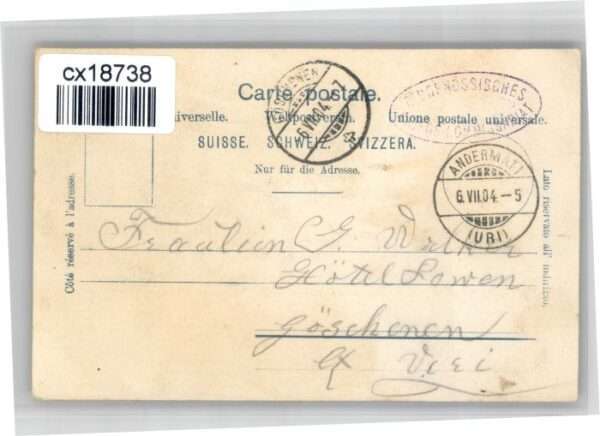 cx18738
Carte postale.
Weltpostverein. Unione postale universale.
SUISSE. SCHWEIZ. SVIZZERA.
Nur für die Adresse.
Côté réservé à l'adresse.
Lato riservato all' indirizzo.
GÖSCHENEN
6.VII.04.-7
ANDERMATT
6.VII.04.-5
(URI)
Fräulein G. Walker
Hôtel Löwen
Göschenen